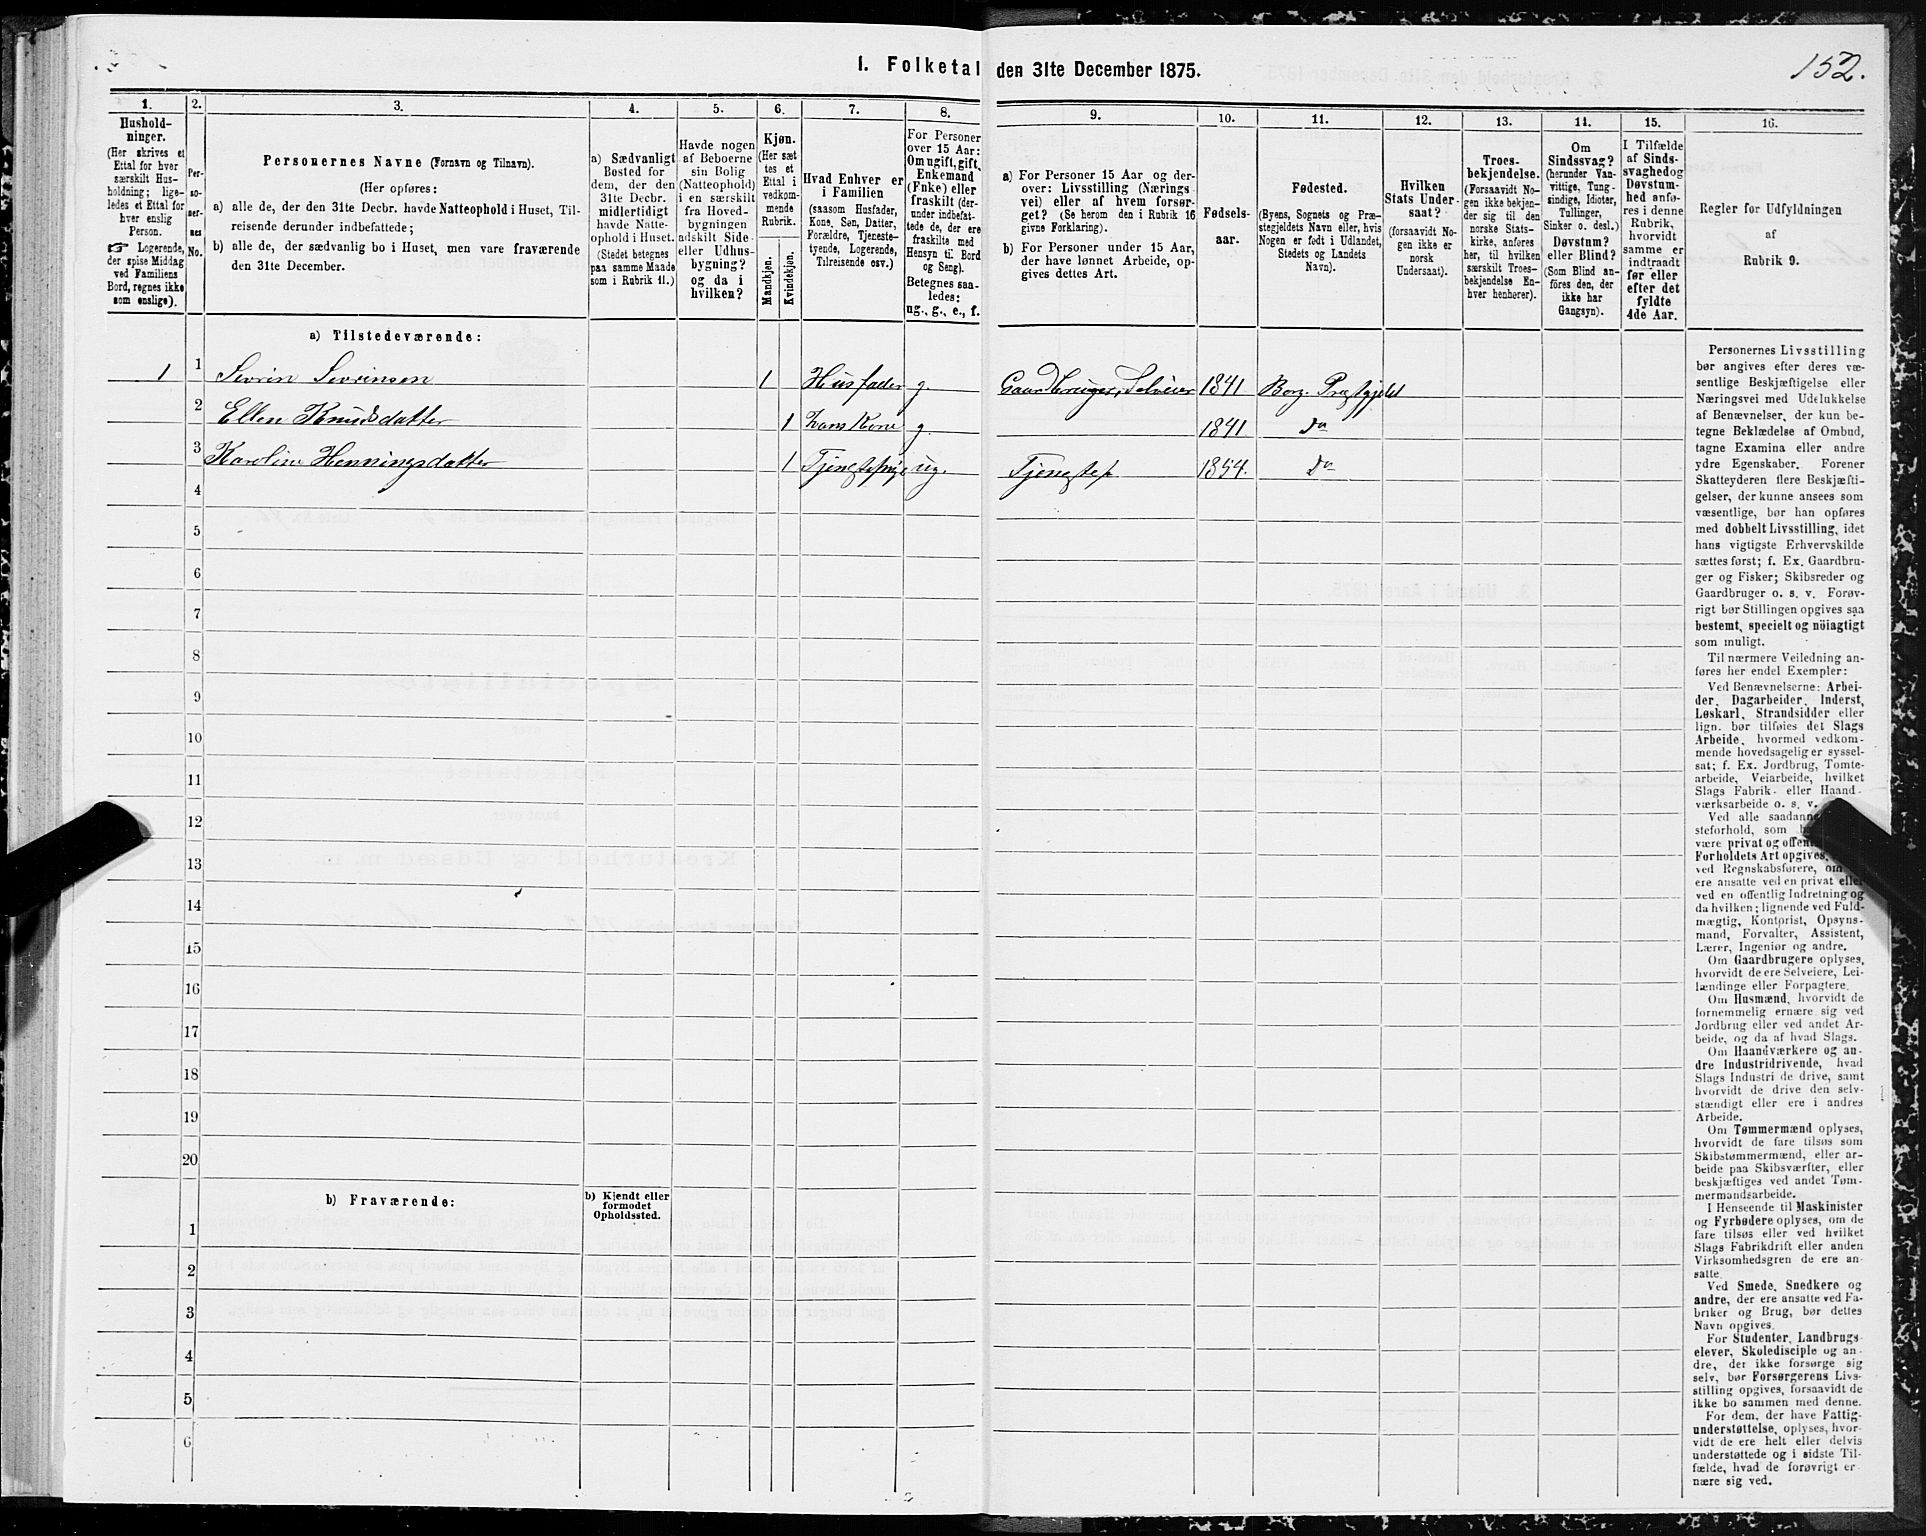 1. Folketal den 31te December 1875.
152.
1.
2.
3.
4.
5.
6.
7.
8.
9.
10.
11.
12.
13.
14.
15.
16.
Hushold-
ninger.
(Her skrives et
Ettal for hver
særskilt Hus-
holdning; lige-
ledes et Ettal for
hver enslig
Person.
☞ Logerende,
der spise Middag
ved Familiens
Bord, regnes ikke
som enslige).
Per-
so-
ner-
nes
No.
Personernes Navne (Fornavn og Tilnavn).
(Her opføres:
a) alle de, der den 31te Decbr. havde Natteophold i Huset, Til-
reisende derunder indbefattede;
b) alle de, der sædvanlig bo i Huset, men vare fraværende
den 31te December.
a) Sædvanligt
Bosted for
dem, der den
31te Decbr.
midlertidigt
havde Natte-
ophold i Huset.
(Stedet betegnes
paa samme Maade
som i Rubrik 11.)
Havde nogen
af Beboerne
sin Bolig
(Natteophold)
i en særskilt
fra Hoved-
bygningen
adskilt Side-
eller Udhus-
bygning?
og da i
hvilken?
Kjøn.
(Her sæt
tes et
Ettal i
vedkom-
mende
Rubrik.
Mandkjøn.
Kvindekjøn.
Hvad Enhver er
i Familien
(saasom Husfader,
Kone, Søn, Datter,
Forældre, Tjeneste-
tyende, Logerende,
Tilreisende osv.)
For Personer
over 15 Aar:
Om ugift, gift,
Enkemand
(Enke) eller
fraskilt (der-
under indbefat-
tede de, der ere
fraskilte med
Hensyn til Bord
og Seng).
Betegnes saa-
ledes:
ug., g., e., f.
a) For Personer 15 Aar og der-
over: Livsstilling (Nærings-
vei) eller af hvem forsør-
get? (Se herom den i Rubrik 16
givne Forklaring).
b) For Personer under 15 Aar,
der have lønnet Arbeide, op-
gives dettes Art.
Fødsels-
aar.
Fødested.
(Byens, Sognets og Præ-
stegjeldets Navn eller, hvis
Nogen er født i Udlandet,
Stedets og Landets
Navn).
Hvilken
Stats Under-
saat?
(forsaavidt No-
gen ikke er
norsk
Undersaat).
Troes-
bekjendelse.
(Forsaavidt No-
gen ikke bekjen-
der sig til den
norske Stats-
kirke, anføres
her, til hvilken
særskilt Troes-
bekjendelse En-
hver henhører).
Om
Sindssvag?
(herunder Van-
vittige, Tung-
sindige, Idioter,
Tullinger,
Sinker o. desl.)
Døvstum?
eller Blind?
(Som Blind an-
føres den, der
ikke har
Gangsyn).
I Tilfælde
af Sinds-
svaghed og
Døvstum-
hed anfø-
res i denne
Rubrik,
hvorvidt
samme er
indtraadt
før eller
efter det
fyldte
4de Aar.
Regler for Udfyldningen
af
Rubrik 9.
a) Tilstedeværende:
1 1 Sevrin Sevrinsen 1 Husfader g. Gaardbruger, Selveier 1841 Borg. Præstgjeld
2 Ellen Knudsdatter 1 Hans Kone g. 1841 Do
3 Karoline Henningsdatter 1 Tjenstepige ug. Tjenstep. 1854. Do
4
5
6
7
8
9
10
11
12
13
14
15
16
17
18
19
20
b) Fraværende:
b) Kjendt eller
formodet
Opholdssted.
1
2
3
4
5
6
Personernes Livsstilling
bør angives efter deres væ-
sentlige Beskjæftigelse eller
Næringsvei med Udelukkelse
af Benævnelser, der kun be-
tegne Beklædelse af Ombud,
tagne Examina eller andre
ydre Egenskaber. Forener
Skatteyderen flere Beskjæfti-
gelser, der kunne ansees som
væsentlige, bør han opføres
med dobbelt Livsstilling, idet
hans vigtigste Erhvervskilde
sættes først; f. Ex. Gaardbru-
ger og Fisker; Skibsreder og
Gaardbruger o. s. v. Forøv-
rigt bør Stillingen opgives saa
bestemt, specielt og nöiagtigt
som muligt.
Til nærmere Veiledning an-
føres her endel Exempler:
Ved Benævnelserne: Arbei-
der, Dagarbeider, Inderst,
Løskarl, Strandsidder eller
lign. bør tilføies det Slags
Arbeide, hvormed vedkom-
mende hovedsagelig er syssel-
sat; f. Ex. Jordbrug, Tomte-
arbeide, Veiarbeide, hvilket
Slags Fabrik- eller Haand-
værksarbeide o. s. v.
Ved alle saadanne
steforhold, som
være privat og offen
Forholdets Art opgives,
ved Regnskabsførere, om
ere ansatte ved en privat eller
ved en offentlig Indretning og
da hvilken; lignende ved Fuld-
mægtig, Kontorist, Opsyns-
mand, Forvalter, Assistent,
Lærer, Ingeniør og andre.
Om Gaardbrugere oplyses,
hvorvidt de ere Selveiere, Lei-
lændinge eller Forpagtere.
Om Husmænd, hvorvidt de
fornemmelig ernære sig ved
Jordbrug eller ved andet Ar-
beide, og da af hvad Slags.
Om Haandværkere og an-
dre Industridrivende, hvad
Slags Industri de drive, samt
hvorvidt de drive den selv-
stændigt eller ere i andres
Arbeide.
Om Tømmermænd oplyses,
hvorvidt de fare tilsøs som
Skibstømmermænd, eller ar-
beide paa Skibsværfter, eller
beskjæftiges ved andet Tøm-
mermandsarbeide.
I Henseende til Maskinister
og Fyrbødere oplyses, om de
fare tilsøs eller ved hvilket
Slags Fabrikdrift eller anden
Virksomhedsgren de ere an-
satte.
Ved Smede, Snedkere og
andre, der ere ansatte ved Fa-
briker og Brug, bør dettes
Navn opgives.
For Studenter, Landbrugs-
elever, Skoledisciple og an-
dre, der ikke forsørge sig
selv, bør Forsørgerens Livs-
stilling opgives, forsaavidt de
ikke bo sammen med denne.
For dem, der have Fattig-
understøttelse, oplyses, hvor-
vidt de ere helt eller delvis
understøttede og i sidste Til-
fælde, hvad de forøvrigt er-
nære sig ved.